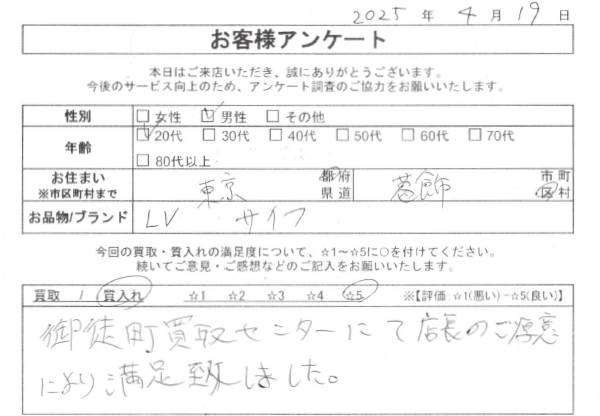 2025 年 4 月 19 日
お客様アンケート
本日はご来店いただき、誠にありがとうございます。
今後のサービス向上のため、アンケート調査のご協力をお願いいたします。
性別 □ 女性 ☑ 男性 □ その他
年齢 ☑ 20代 □ 30代 □ 40代 □ 50代 □ 60代 □ 70代
□ 80代以上
お住まい ※市区町村まで 東京 都府県道 葛飾 市町区村
お品物/ブランド LV サイフ
今回の買取・質入れの満足度について、☆1～☆5に○を付けてください。
続いてご意見・ご感想などのご記入をお願いいたします。
買取 / 質入れ ☆1 ☆2 ☆3 ☆4 ☆5 ※【評価:☆1(悪い)−☆5(良い)】
御徒町買取センターにて店長のご厚意
により満足致しました。